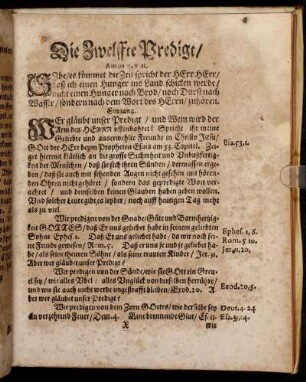 Die Zwelffte Predigt/
Amos 8. v. 11.
Sihe/ es kömmet die Zeit/ spricht der HErr HErr/
daß ich einen Hunger ins Land schicken werde/
nicht einen Hunger nach Brod/ noch Durst nach
Wasser/ sondern nach dem Wort des HErrn/ zuhören.
Eingang.
WEr gläubt unser Predigt/ und Wem wird der
Arm des HERRN offenbahret? Spricht ihr meine
Geliebte und außerwehlte Freunde in Christo Jesu/
GOtt der HErr beym Propheten Esaia am 53. Capitel. Zei-
get hiermit kläglich an die grosse Sicherheit und Unbußfertig-
keit der Menschen/ daß sie sich in ihren Sünden/ dermassen erge-
ben/ daß sie auch mit sehenden Augen nicht gesehen mit hören-
den Ohren nicht gehöret/ sondern das gepredigte Wort verach-
tet/ und demselben keinen Glauben haben geben wollen.
Und solcher Leute gibt es leyder/ noch auff heutigen Tag mehr
als zu viel.
Wir predigen von der Gnade/ Güte und Barmhertzig-
keit GOTTES/ daß Er uns geliebet habe in seinem geliebten
Sohn/ Ephes. 1. Daß Er uns geliebet habe/ da wir noch sei-
ne Feinde gewesen/ Rom. 5. Daß er uns je und je geliebet ha-
be/ als seine theuren Söhne/ als seine trauten Kinder/ Jer. 31.
Aber wer gläubet unser Predigt?
Wir predigen von der Sünde/ wie sie GOtt ein Greu-
el sey/ wie alles Übel/ alles Unglück von derselben herrühre/
und wie sie auch nicht werde ungestrafft bleiben/ Exod. 20. A-
ber wer gläubet unser Predigt?
Wir predigen vom Zorn GOttes/ wie derselbe sey
ein verzehrend Feuer/ Deut. 4. Eine brennende Glut/ Es. 33.
X
wie
Esa. 53, 1.
Ephes. 1, 6.
Rom. 5. 10.
Jer. 31, 20.
Exod. 20, 5.
Deut. 4. 24